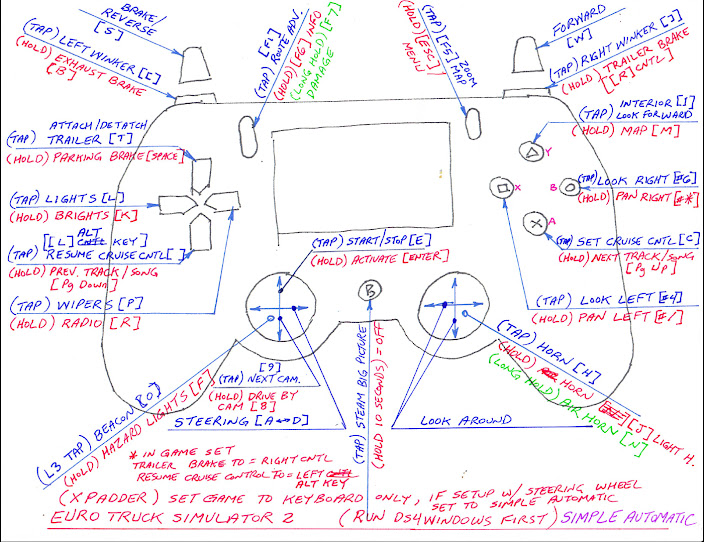 BRAKE/
REVERSE
[S]
(TAP) LEFT WINKER [C]
(HOLD) EXHAUST BRAKE
[B]
(TAP) [F1]
ROUTE ADV.
(HOLD) [F6] INFO
(LONG HOLD) [F7]
DAMAGE
(TAP) [F5] ZOOM
MAP
(HOLD) [ESC]/
MENU
FORWARD
[W]
(TAP) RIGHT WINKER [J]
(HOLD) TRAILER BRAKE
[[R] CNTL]
ATTACH/DETATCH
(TAP) TRAILER [T]
(HOLD) PARKING BRAKE [SPACE]
(TAP) LIGHTS [L]
(HOLD) BRIGHTS [K]
[[L] ALT KEY]
(TAP) RESUME CRUISE CNTL[ ]
(HOLD) PREV. TRACK/SONG
[Pg Down]
(TAP) WIPERS [P]
(HOLD) RADIO [R]
INTERIOR [1]
(TAP) LOOK FORWARD
(HOLD) MAP [M]
Y
X
B
A
(TAP) LOOK RIGHT [#6]
(HOLD) PAN RIGHT [#*]
(TAP) SET CRUISE CNTL [C]
(HOLD) NEXT TRACK/SONG
[Pg Up]
(TAP) LOOK LEFT [#4]
(HOLD) PAN LEFT [#/]
(TAP) START/STOP [E]
(HOLD) ACTIVATE [ENTER]
B
(TAP) STEAM BIG PICTURE
(HOLD 10 SECONDS) = OFF
(TAP) HORN [H]
(HOLD) HORN [J] LIGHT H.
(LONG HOLD) AIR HORN [N]
(L3 TAP) BEACON [O]
(HOLD) HAZARD LIGHTS [F]
[9]
(TAP) NEXT CAM.
(HOLD) DRIVE BY
CAM [8]
STEERING [A↔D]
LOOK AROUND
* IN GAME SET
TRAILER BRAKE TO = RIGHT CNTL
RESUME CRUISE CONTROL TO = LEFT
ALT KEY
(XPADDER) SET GAME TO KEYBOARD ONLY, IF SETUP W/ STEERING WHEEL
SET TO SIMPLE AUTOMATIC
EURO TRUCK SIMULATOR 2 (RUN DS4WINDOWS FIRST) SIMPLE AUTOMATIC